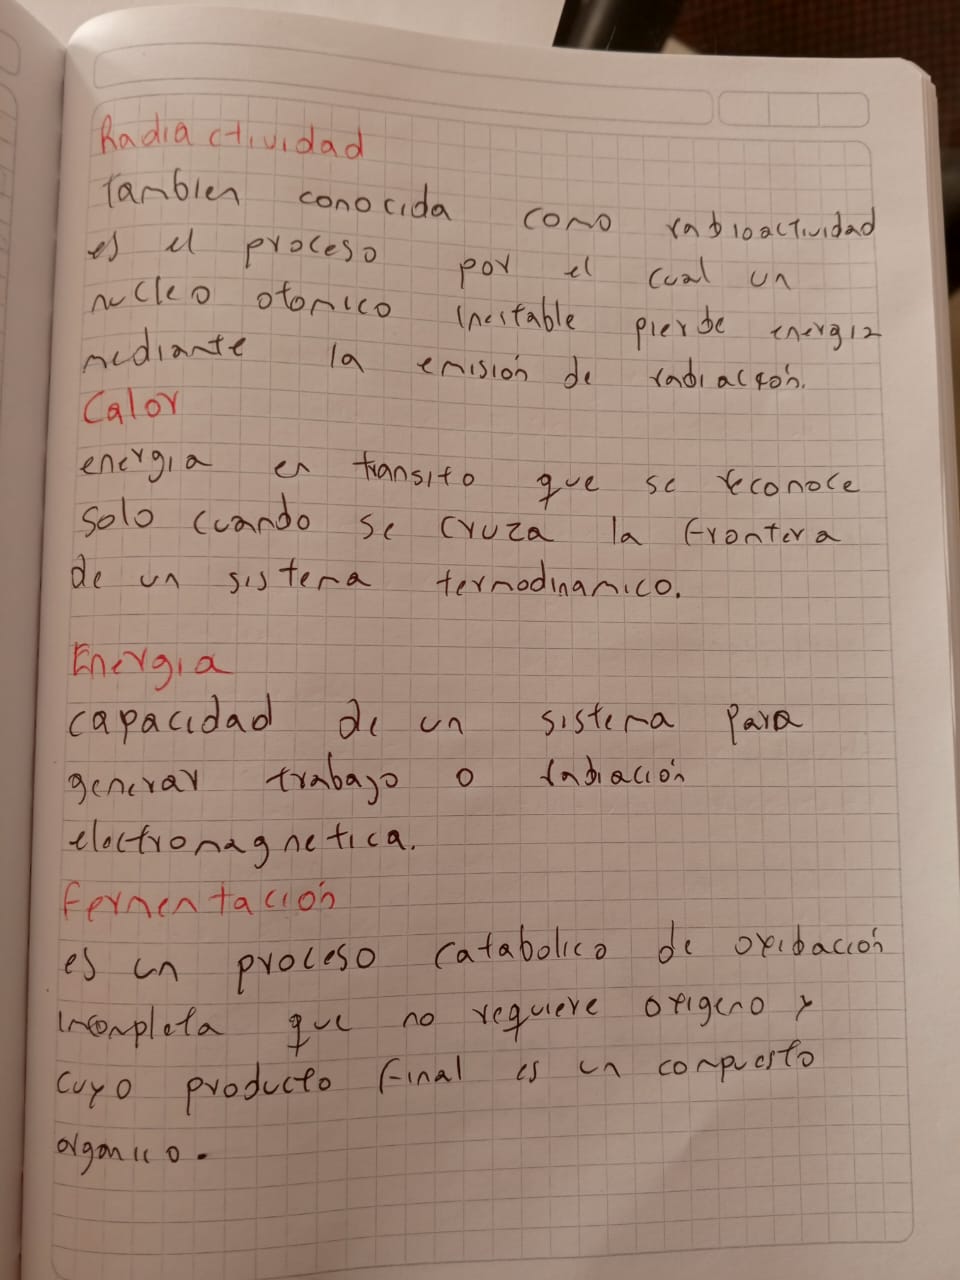 Radiactividad
Tambien conocida como radioactividad
es el proceso por el cual un
nucleo atomico inestable pierde energia
mediante la emisión de radiación.
Calor
energia en transito que se reconoce
solo cuando se cruza la frontera
de un sistema termodinamico.
Energia
capacidad de un sistema para
generar trabajo o radiación
electromagnetica.
Fermentación
es un proceso catabolico de oxidación
incompleta que no requiere oxigeno y
cuyo producto final es un compuesto
organico.